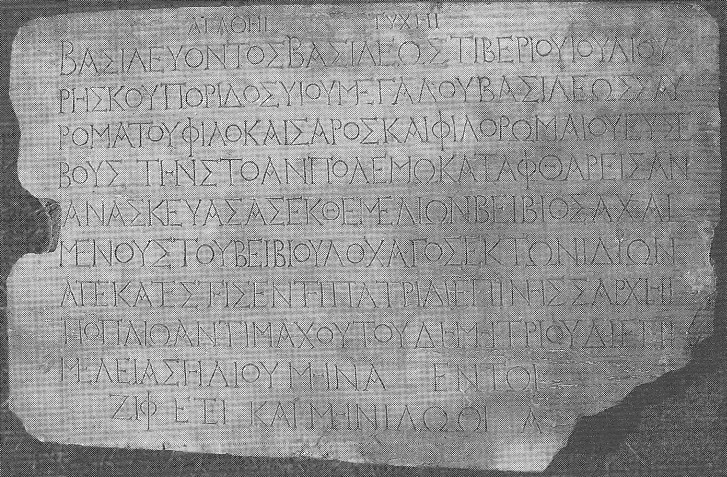 ΑΓΑΘΗΙ ΤΥΧΗΙ
ΒΑΣΙΛΕΥΟΝΤΟΣΒΑΣΙΛΕΩΣΤΙΒΕΡΙΟΥΙΟΥΛΙΟΥ
ΡΗΣΚΟΥΠΟΡΙΔΟΣΥΙΟΥΜΕΓΑΛΟΥΒΑΣΙΛΕΩΣΣΑΥ
ΡΟΜΑΤΟΥΦΙΛΟΚΑΙΣΑΡΟΣΚΑΙΦΙΛΟΡΩΜΑΙΟΥΕΥΣΕ
ΒΟΥΣ ΤΗΝΣΤΟΑΝΠΟΛΕΜΩΚΑΤΑΦΘΑΡΕΙΣΑΝ
ΑΝΑΣΚΕΥΑΣΑΣΕΚΘΕΜΕΛΙΩΝΒΕΙΒΙΟΣΑΧΑΙ
ΜΕΝΟΥΣΤΟΥΒΕΙΒΙΟΥΛΟΧΑΓΟΣΕΚΤΩΝΙΔΙΩΝ
ΑΠΕΚΑΤΕΣΤΗΣΕΝΤΗΠΑΤΡΙΔΙΕΠΙΝΗΣΣΑΡΧΗΙ
ΑΝΤΙΜΑΧΟΥΤΟΥΔΗΜΗΤΡΙΟΥΔΙΕΠΙ
ΜΕΛΕΙΑΣΗΛΙΟΥΜΗΝΑ ΕΝΤΩΙ
ΖΙΦ ΕΤΙ ΚΑΙΜΗΝΙΛΩΩΙ Α